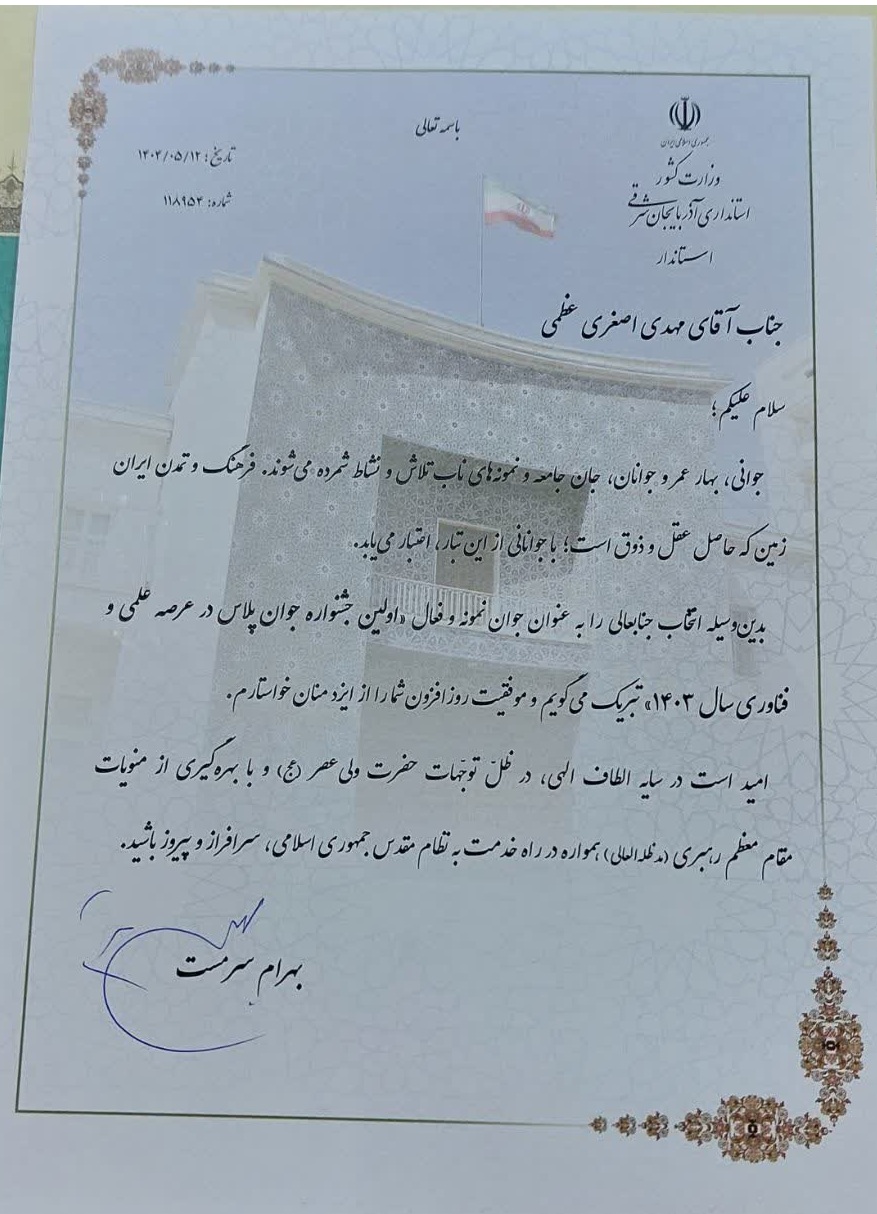 باسمه تعالی
جمهوری اسلامی ایران
وزارت کشور
استانداری آذربایجان شرقی
استاندار
تاریخ: ۱۴۰۴/۰۵/۱۲
شماره: ۱۱۸۹۵۴
جناب آقای مهدی اصغری عظمی
سلام علیکم؛
جوانی، بهار عمر و جوانان، جان جامعه و نمونه‌های ناب تلاش و نشاط شمرده می‌شوند. فرهنگ و تمدن ایران
زمین که حاصل عقل و ذوق است؛ با جوانانی از این تبار، اعتبار می‌یابد.
بدین‌وسیله انتخاب جنابعالی را به عنوان جوان نمونه و فعال «اولین جشنواره جوان پلاس در عرصه علمی و
فناوری سال ۱۴۰۳» تبریک می‌گویم و موفقیت روزافزون شما را از ایزد منان خواستارم.
امید است در سایه الطاف الهی، در ظلّ توجّهات حضرت ولی‌عصر (عج) و با بهره‌گیری از منویات
مقام معظم رهبری (مدظله‌العالی) همواره در راه خدمت به نظام مقدس جمهوری اسلامی، سرافراز و پیروز باشید.
بهرام سرمست